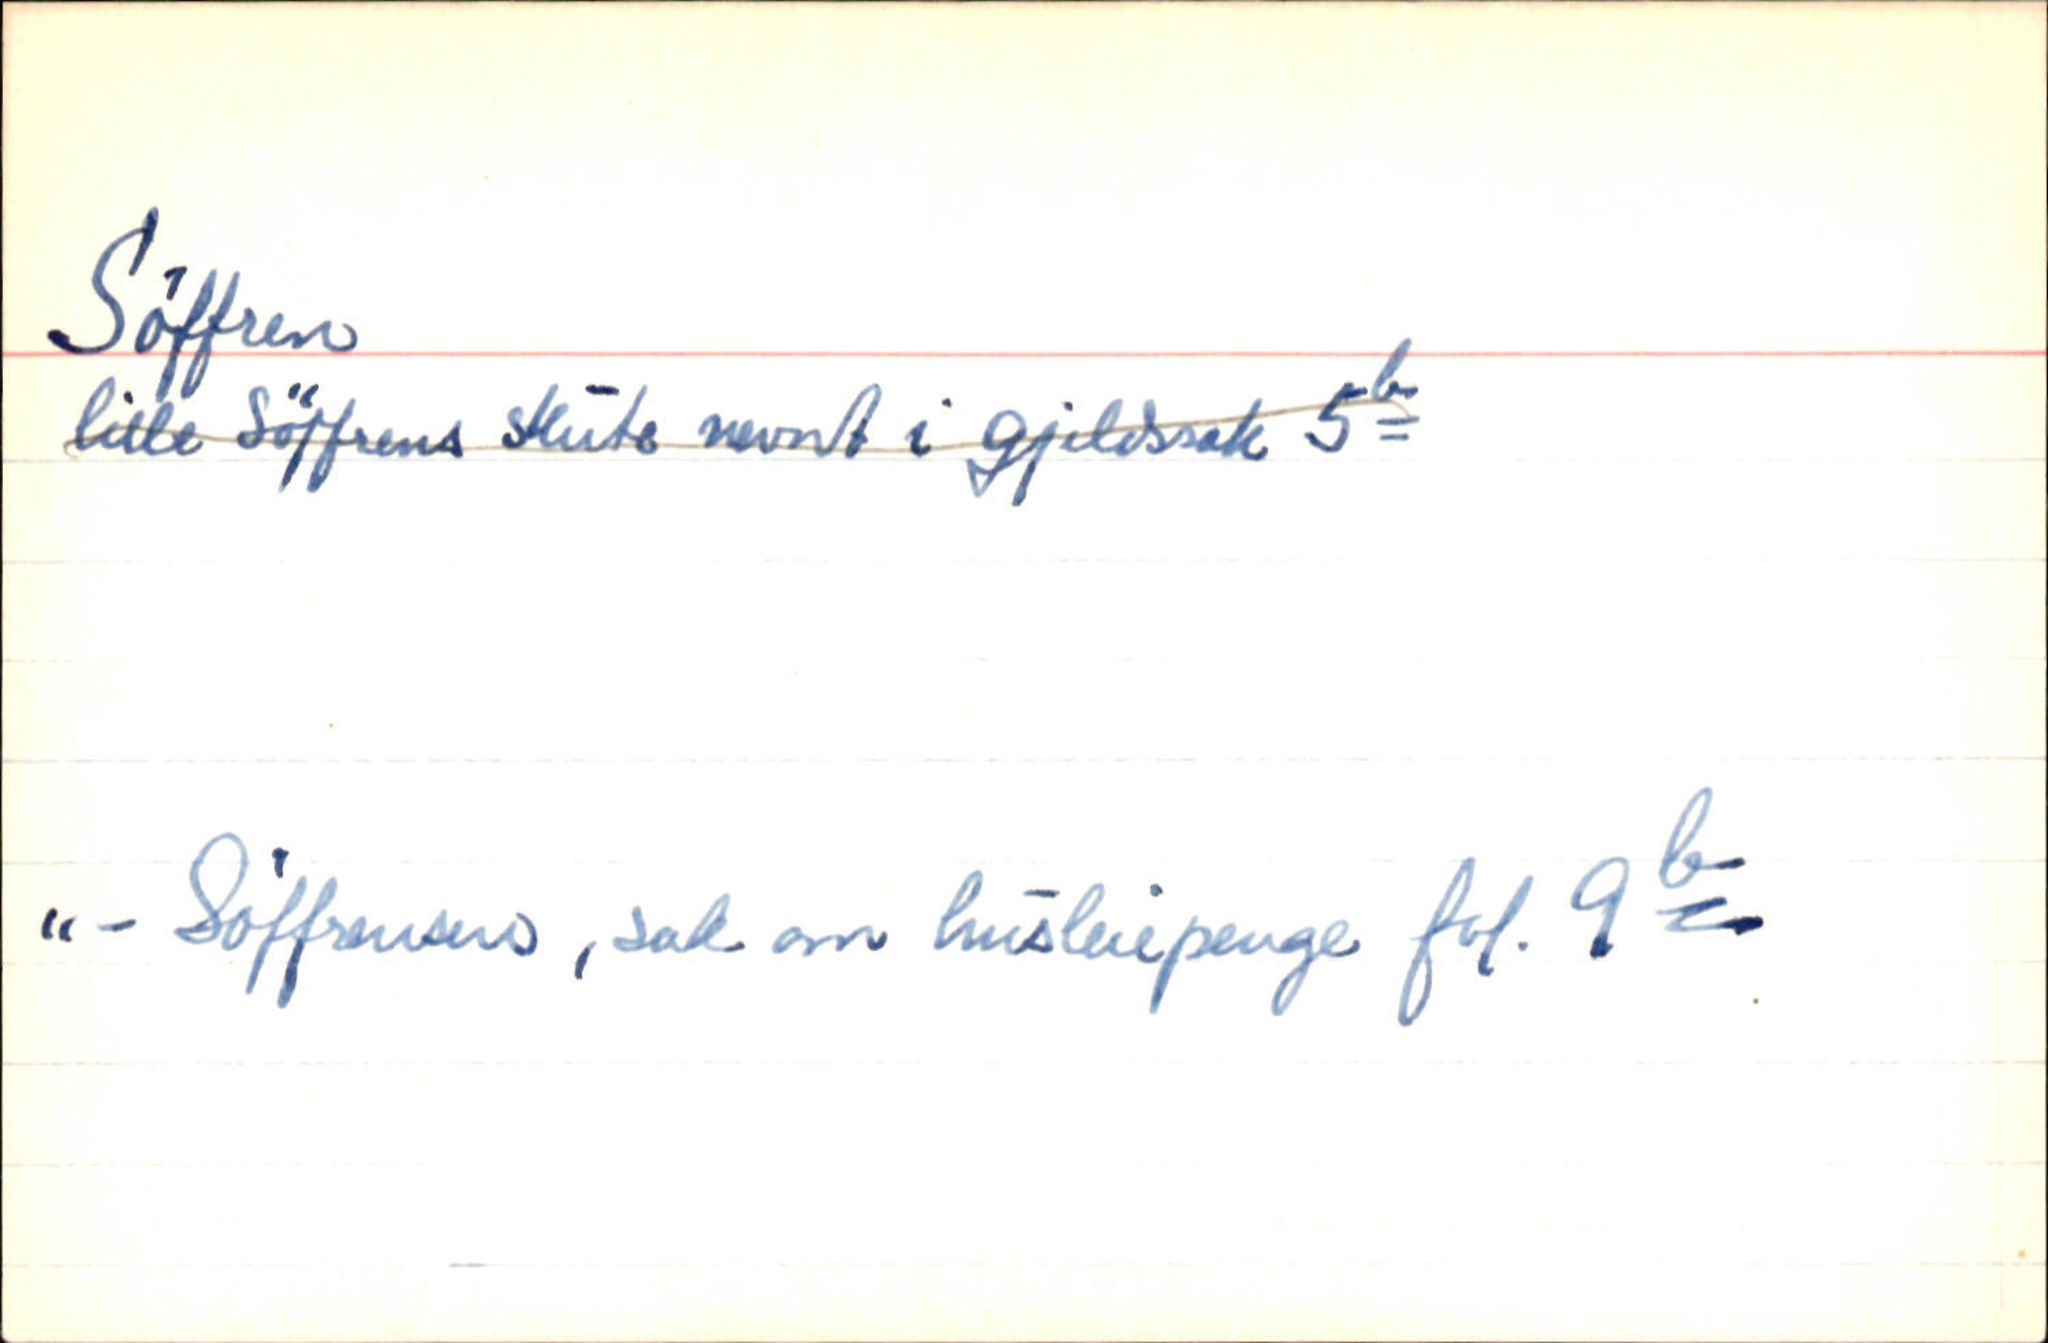 Söffren
lille Söffrens skūte nevnt i gjeldssak 5b
"- Söffrensen, sak om hūsleiepenge fol. 9b